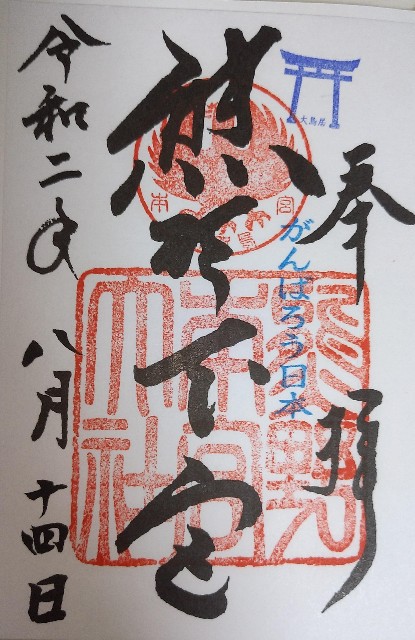 奉拝
大鳥居
がんばろう日本
熊野本宮
熊野
本宮
大社
令和二年八月十四日